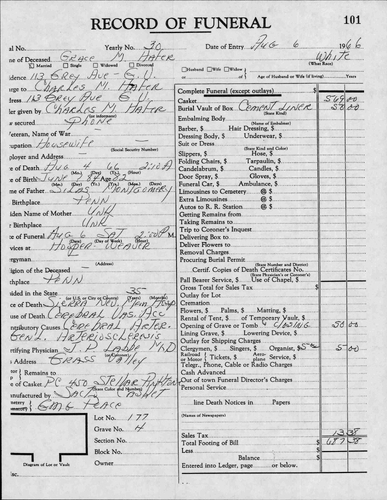 RECORD OF FUNERAL 101
al No. Yearly No. 30 Date of Entry Aug 6 1966
e of Deceased Grace M. Hafer White
Married Single Widowed Divorced Husband Wife Widow (What Race)
idence 113 Grey Ave - G.V. or of Age of Husband or Wife (if living) Years
rge to Charles M. Hafer
ress 113 Grey Ave G.V.
er given by Charles M. Hafer
secured Phone
eteran, Name of War
upation Housewife (Social Security Number)
ployer and Address
e of Death Aug 4 66 2:10A
e of Birth June
(Mo.) (Day) (Yr.)
e of Father Silas Montgomery
Birthplace Penn
iden Name of Mother Unk
Birthplace Unk
e of Funeral Aug 6 Sat 2:00P M.
vices at Hooper Weaver
rgyman (Address)
igion of the Deceased
thplace Penn
sided in the State 35
for U.S. or City or County
ce of Death
e of Death Cerebral Vas. Acc
ntributory Causes Cerebral Arter.
Genl. Arteriosclerosis
rtifying Physician M.D
Address Grass Valley
Remains to
e of Casket
nufactured by Casket
Peace
Lot No. 177
Grave No. 4
Section No.
Block No.
Owner
Diagram of Lot or Vault
Complete Funeral (except outlays) $
Casket 569.00
Burial Vault of Box Cement Liner 50.00
(State Kind)
Embalming Body
(Name of Embalmer)
Barber, $ Hair Dressing, $
Dressing Body, $ Underwear, $
Suit or Dress
(State Kind and Color)
Slippers, $ Hose, $
Folding Chairs, $ Tarpaulin, $
Candelabrum, $ Candles, $
Door Spray, $ Gloves, $
Funeral Car, $ Ambulance, $
Limousines to Cemetery @ $
Extra Limousines @ $
Autos to R. R. Station @ $
Getting Remains from
Taking Remains to
Trip to Coroner's Inquest
Delivering Box to
Deliver Flowers to
Removal Charges
Procuring Burial Permit
(State Number and District)
Certif. Copies of Death Certificates No.
Pall Bearer Service, $ Use of Chapel, $
Gross Total for Sales Tax $
Outlay for Lot
Cremation
Flowers, $ Palms, $ Matting, $
Rental of Tent, $ of Temporary Vault, $
Opening of Grave or Tomb & Closing 50.00
Lining Grave, $ Lowering Device, $
Outlay for Shipping Charges
Clergymen, $ Singers, $ Organist, $ 5.00 5.00
Railroad or Motor Tickets, $ Aeroplane Service, $
Telegr., Phone, Cable or Radio Charges
Cash Advanced
Out of town Funeral Director's Charges
Personal Service
line Death Notices in Papers
(Names of Newspapers)
Sales Tax 13.38
Total Footing of Bill $ 687.38
Less
Balance $
Entered into Ledger, page or below.